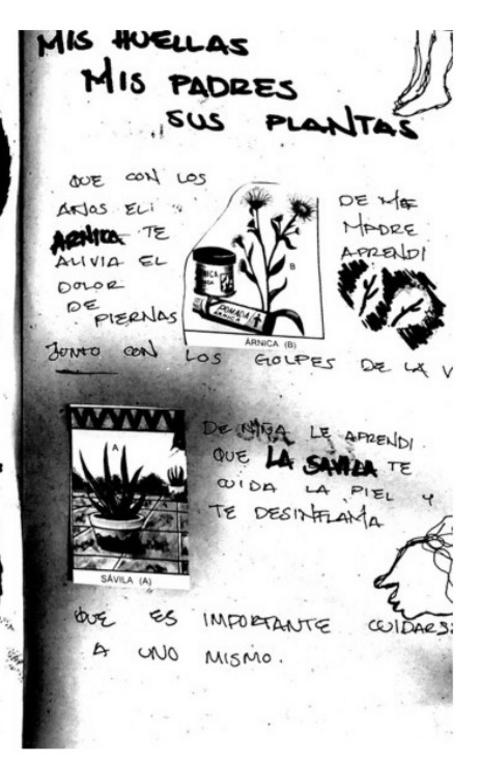 MIS HUELLAS
MIS PADRES
SUS PLANTAS
DE MI
MADRE
APRENDI
QUE CON LOS
AÑOS ELi
ARNICA TE
ALIVIA EL
DOLOR
DE
PIERNAS
B
POMADA
ARNICA
ÁRNICA (B)
JUNTO CON LOS GOLPES DE LA V
DE NIÑA LE APRENDI
QUE LA SAVILA TE
CUIDA LA PIEL Y
TE DESINFLAMA
A
SÁVILA (A)
QUE ES IMPORTANTE CUIDARS
A UNO MISMO.